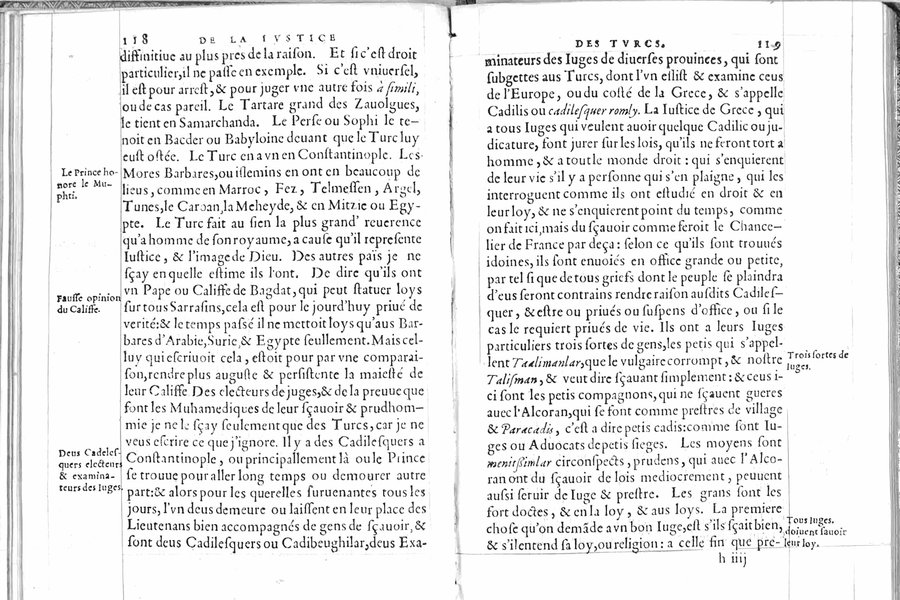 118 DE LA IVSTICE
diffinitiue au plus pres de la raison. Et si c'est droit
particulier, il ne passe en exemple. Si c'est vniuersel,
il est pour arrest, & pour juger vne autre fois à simili,
ou de cas pareil. Le Tartare grand des Zauolgues,
le tient en Samarchanda. Le Perse ou Sophi le te-
noit en Bacder ou Babyloine deuant que le Turc luy
eust ostée. Le Turc en a vn en Constantinople. Les
Mores Barbares, ou islemins en ont en beaucoup de
lieus, comme en Marroc, Fez, Telmessen, Argel,
Tunes, le Caroan, la Meheyde, & en Mitzie ou Egy-
pte. Le Turc fait au sien la plus grand' reuerence
qu'a homme de son royaume, a cause qu'il represente
Iustice, & l'image de Dieu. Des autres païs je ne
sçay en quelle estime ils l'ont. De dire qu'ils ont
vn Pape ou Califfe de Bagdat, qui peut statuer loys
sur tous Sarrasins, cela est pour le jourd'huy priué de
verité: & le temps passé il ne mettoit loys qu'aus Bar-
bares d'Arabie, Surie, & Egypte seullement. Mais cel-
luy qui escriuoit cela, estoit pour par vne comparai-
son, rendre plus auguste & persistente la maiesté de
leur Califfe Des electeurs de juges, & de la preuue que
font les Muhamediques de leur sçauoir & prudhom-
mie je ne le sçay seulement que des Turcs, car je ne
veus escrire ce que j'ignore. Il y a des Cadilesquers a
Constantinople, ou principallement là ou le Prince
se trouue pour aller long temps ou demourer autre
part: & alors pour les querelles suruenantes tous les
jours, l'vn deus demeure ou laissent en leur place des
Lieutenans bien accompagnés de gens de sçauoir, &
sont deus Cadilesquers ou Cadibeughilar, deus Exa-
Le Prince ho-
nore le Mu-
phti.
Fausse opinion
du Califfe.
Deus Cadeles-
quers electeurs
& examina-
teurs des Iuges.
DES TVRCS. 119
minateurs des Iuges de diuerses prouinces, qui sont
subgettes aus Turcs, dont l'vn eslist & examine ceus
de l'Europe, ou du costé de la Grece, & s'appelle
Cadilis ou cadilesquer romly. La Iustice de Grece, qui
a tous Iuges qui veulent auoir quelque Cadilic ou ju-
dicature, font jurer sur les lois, qu'ils ne feront tort a
homme, & a tout le monde droit: qui s'enquierent
de leur vie s'il y a personne qui s'en plaigne, qui les
interroguent comme ils ont estudié en droit & en
leur loy, & ne s'enquierent point du temps, comme
on fait ici, mais du sçauoir comme feroit le Chance-
lier de France par deça: selon ce qu'ils sont trouués
idoines, ils sont enuoiés en office grande ou petite,
par tel si que de tous griefs dont le peuple se plaindra
d'eus seront contrains rendre raison ausdits Cadiles-
quer, & estre ou priués ou suspens d'office, ou si le
cas le requiert priués de vie. Ils ont a leurs Iuges
particuliers trois sortes de gens, les petis qui s'appel-
lent Taalimanlar, que le vulgaire corrompt, & nostre
Talisman, & veut dire sçauant simplement: & ceus i-
ci sont les petis compagnons, qui ne sçauent gueres
auec l'Alcoran, qui se font comme prestres de village
& Paracadis, c'est a dire petis cadis: comme sont Iu-
ges ou Aduocats de petis sieges. Les moyens sont
menitßimlar circonspects, prudens, qui auec l'Alco-
ran ont du sçauoir de lois mediocrement, peuuent
aussi seruir de Iuge & prestre. Les grans sont les
fort doctes, & en la loy, & aus loys. La premiere
chose qu'on demãde a vn bon Iuge, est s'ils sçait bien,
& s'il entend sa loy, ou religion: a celle fin que pre-
h iiij
Trois sortes de
Iuges.
Tous Iuges.
doiuent sauoir
leur loy.